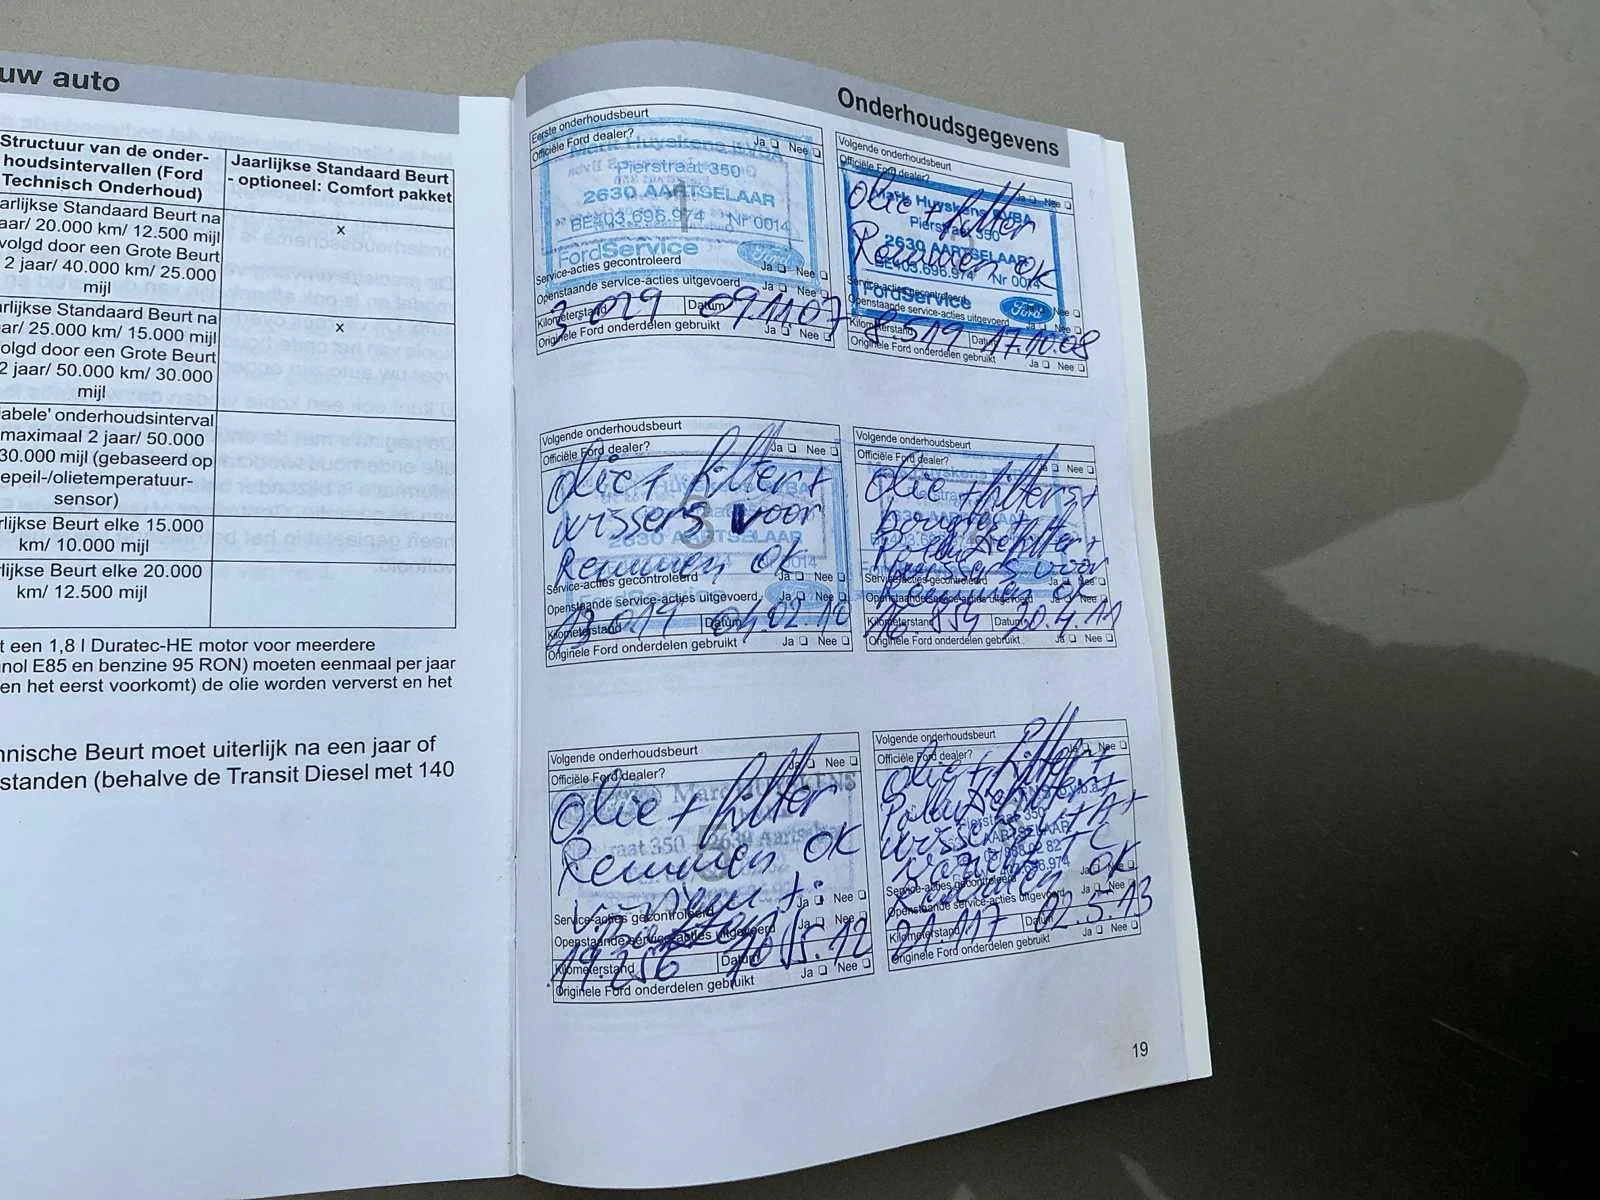 uw auto
Structuur van de onder-
houdsintervallen (Ford
Technisch Onderhoud)
Jaarlijkse Standaard Beurt
- optioneel: Comfort pakket
arlijkse Standaard Beurt na
aar/ 20.000 km/ 12.500 mijl
volgd door een Grote Beurt
2 jaar/ 40.000 km/ 25.000
mijl
x
arlijkse Standaard Beurt na
ar/ 25.000 km/ 15.000 mijl
olgd door een Grote Beurt
2 jaar/ 50.000 km/ 30.000
mijl
x
abele' onderhoudsinterval
maximaal 2 jaar/ 50.000
30.000 mijl (gebaseerd op
epeil-/olietemperatuur-
sensor)
rlijkse Beurt elke 15.000
km/ 10.000 mijl
rlijkse Beurt elke 20.000
km/ 12.500 mijl
t een 1,8 l Duratec-HE motor voor meerdere
nol E85 en benzine 95 RON) moeten eenmaal per jaar
en het eerst voorkomt) de olie worden ververst en het
nnische Beurt moet uiterlijk na een jaar of
standen (behalve de Transit Diesel met 140
Onderhoudsgegevens
Eerste onderhoudsbeurt
Officiële Ford dealer? Ja Nee
Mark Huyskens BVBA
Pierstraat 350
2630 AARTSELAAR
1
BE403.696.974 Nr 0014
FordService Ford
Service-acties gecontroleerd Ja Nee
Openstaande service-acties uitgevoerd Ja Nee
Kilometerstand 3.029 Datum 09.11.07
Originele Ford onderdelen gebruikt Ja Nee
Volgende onderhoudsbeurt
Officiële Ford dealer? Ja Nee
Mark Huyskens BVBA
Olie + filter
Pierstraat 350
2630 AARTSELAAR
Remmen OK
BE403.696.974 Nr 0014
Service-acties gecontroleerd
FordService Ford
Openstaande service-acties uitgevoerd Ja Nee
Kilometerstand 8.519 Datum 17.10.08
Originele Ford onderdelen gebruikt Ja Nee
Volgende onderhoudsbeurt
Officiële Ford dealer? Ja Nee
Olie + filter +
wissers voor
3
2630 AARTSELAAR
Remmen OK
Service-acties gecontroleerd Ja Nee
Openstaande service-acties uitgevoerd Ja Nee
FordService
Kilometerstand 13.019 Datum 04.02.10
Originele Ford onderdelen gebruikt Ja Nee
Volgende onderhoudsbeurt
Officiële Ford dealer? Ja Nee
Olie + filters +
bougies +
Pollenfilter +
wissers voor
Remmen OK
Service-acties gecontroleerd Ja Nee
Openstaande service-acties uitgevoerd Ja Nee
Kilometerstand 16.859 Datum 20.4.11
Originele Ford onderdelen gebruikt Ja Nee
Volgende onderhoudsbeurt
Officiële Ford dealer? Ja Nee
Marc HUYSKENS
Olie + filter
Pierstraat 350 2630 Aartselaar
Remmen OK
Service-acties gecontroleerd Ja Nee
Openstaande service-acties uitgevoerd Ja Nee
Kilometerstand 19.256 Datum 10.5.12
Originele Ford onderdelen gebruikt Ja Nee
Volgende onderhoudsbeurt
Officiële Ford dealer? Ja Nee
Olie + filter +
Pollenfilter +
Pierstraat 350
wissers V + A +
AARTSELAAR
Remmen OK
Service-acties gecontroleerd Ja Nee
Openstaande service-acties uitgevoerd Ja Nee
Kilometerstand 21.117 Datum 02.5.13
Originele Ford onderdelen gebruikt Ja Nee
19